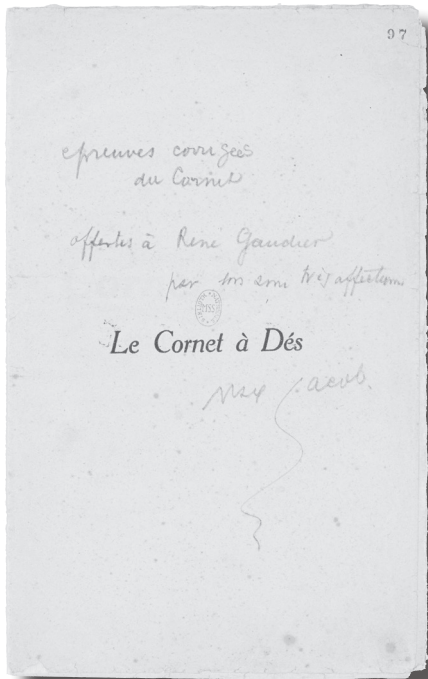 97
epreuves corrigées
du Cornet
offertes à René Gaudier
par son ami très affectionné
Le Cornet à Dés
Max Jacob.